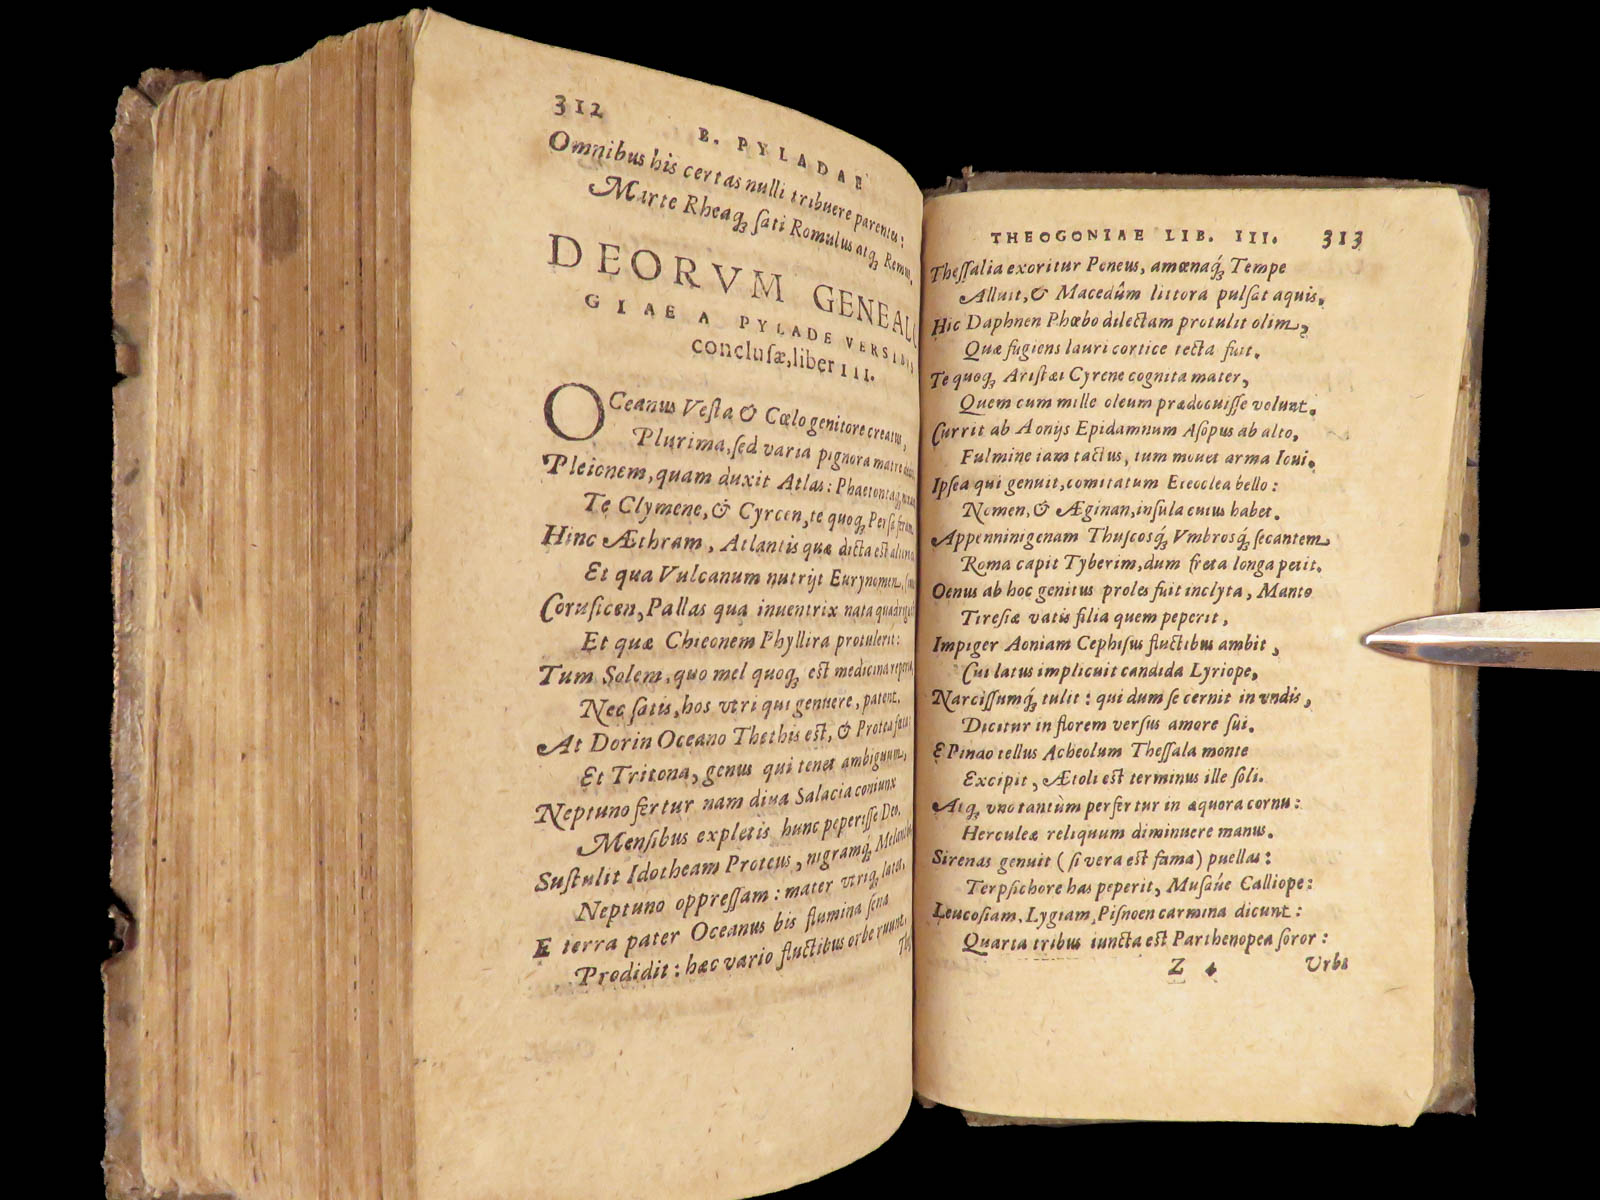 312
B. PYLADAE
Omnibus his certas nulli tribuere parentes:
Marte Rheaq; ſati Romulus atq; Remus.
DEORVM GENEALO
GIAE A PYLADE VERSIBVS
concluſæ, liber III.
OCeanus Veſta & Cœlo genitore creatus,
Plurima, ſed varia pignora matre
Pleionem, quam duxit Atlas: Phaetontaq;
Te Clymene, & Cyrcen, te quoq; Perſa
Hinc Æthram, Atlantis quæ dicta est alumna
Et qua Vulcanum nutrijt Eurynomen,
Coruſicen, Pallas qua inuentrix nata
Et quæ Chieonem Phyllira protulerit:
Tum Solem, quo mel quoq; est medicina
Nec ſatis, hos vtri qui genuere, patent.
At Dorin Oceano Thethis est, & Protea
Et Tritona, genus qui tenet ambiguum,
Neptuno fertur nam diua Salacia coniunx
Menſibus expletis hunc peperiſſe Deo.
Suſtulit Idotheam Proteus, nigramq́;
Neptuno oppreſſam: mater vtriq; lata.
E terra pater Oceanus bis flumina ſena
Prodidit: hæc vario fluctibus orbe ruunt.
Theſ
THEOGONIAE LIB. III. 313
Theſſalia exoritur Peneus, amœnaq́; Tempe
Alluit, & Macedûm littora pulſat aquis.
Hic Daphnen Phœbo dilectam protulit olim,
Quæ fugiens lauri cortice tecta fuit.
Te quoq; Ariſtæi Cyrene cognita mater,
Quem cum mille oleum prædocuiſſe volunt.
Currit ab Aonijs Epidamnum Aſopus ab alto,
Fulmine iam tactus, tum mouet arma Ioui.
Ipſea qui genuit, comitatum Eteoclea bello:
Nomen, & Æginan, inſula cuius habet.
Appenninigenam Thuſcosq́; Vmbrosq́; ſecantem
Roma capit Tyberim, dum freta longa petit.
Oenus ab hoc genitus proles fuit inclyta, Manto
Tireſiæ vatis filia quem peperit,
Impiger Aoniam Cephiſus fluctibus ambit,
Cui latus implicuit candida Lyriope,
Narciſſumq́; tulit: qui dum ſe cernit in vndis,
Dicitur in florem verſus amore ſui.
E Pinao tellus Acheolum Theſſala monte
Excipit, Ætoli est terminus ille ſoli.
Atq; vno tantùm perfertur in æquora cornu:
Herculeæ reliquum diminuere manus.
Sirenas genuit (ſi vera est fama) puellas:
Terpſichore has peperit, Muſáue Calliope:
Leucoſiam, Lygiam, Piſnoen carmina dicunt:
Quarta tribus iuncta est Parthenopea ſoror:
Z 4 Vrbs